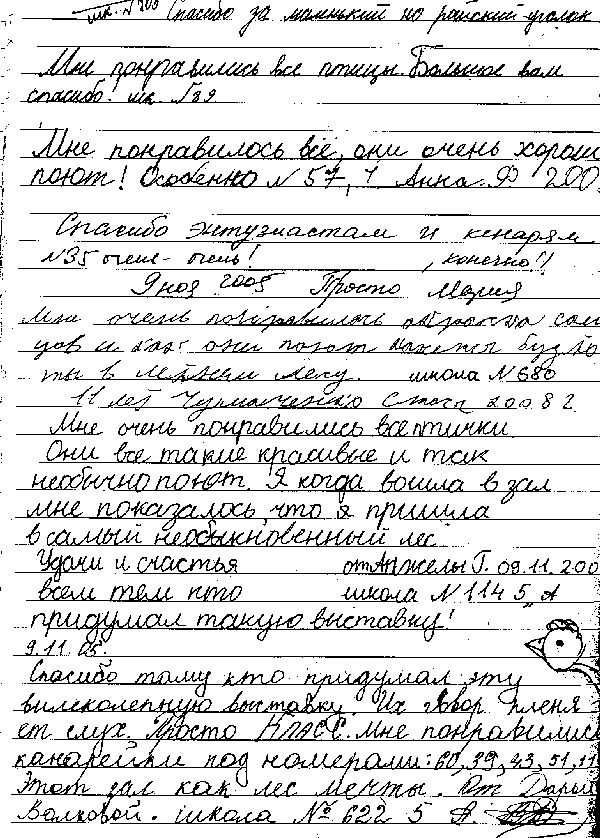 шк. №200 Спасибо за маленький но райский уголок
Мне понравились все птицы. Большое вам
спасибо! шк. №89
Мне понравилось всё, они очень хорош
поют! Особенно №57, 1 Анна. Ф 200
Спасибо энтузиастам и кенарям
№35 очень-очень! , конечно!!
9 ноя 2005 Просто Мария
Мне очень понравилась окраска сам
цов и как они поют кажется будто
ты в летнем лесу. школа №680
11 лет 2008 г
Мне очень понравились все птички.
Они все такие красивые и так
необычно поют. Я когда вошла в зал
мне показалось, что я пришла
в самый необыкновенный лес
Удачи и счастья от Анжелы Г. 09.11.200
всем тем кто школа №114 5 „А
придумал такую выставку!
9.11.05.
Спасибо тому кто придумал эту
вилеколепную выставку. Их говор пленя
ет слух. Просто КЛАСС. Мне понравились
канарейки под номерами: 60, 39, 43, 51, 11
Этот зал как лес мечты. От Дарьи
Волковой. школа № 622 5 А.